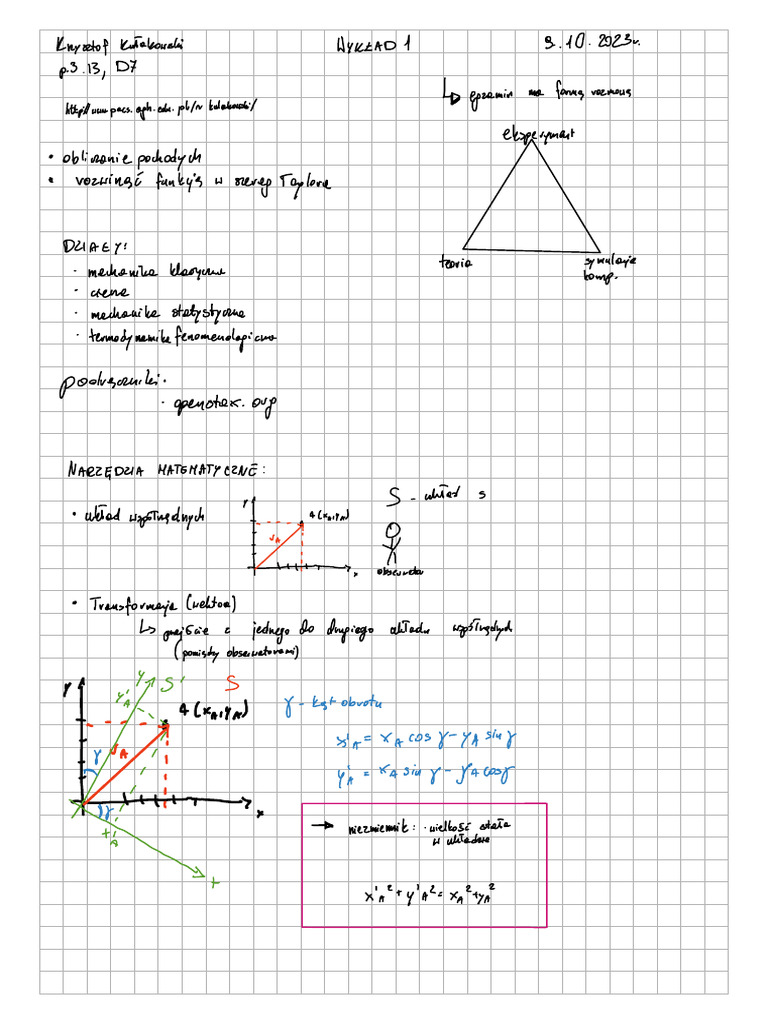 Krzysztof Kułakowski
p.3.13, D7
WYKŁAD 1
9.10.2023r.
↳ egzamin ma formę rozmowy
http://www.pacs.agh.edu.pl/~kulakowski/
eksperyment
teoria
symulacje
komp.
• obliczanie pochodych
• rozwinąć funkcję w szereg Taylora
DZIAŁY:
· mechanika klasyczna
· mechanika statystyczna
· termodynamika fenomenologiczna
podręczniki:
· openstax.org
NARZĘDZIA MATEMATYCZNE:
• układ współrzędnych
y
A(xA,yA)
x
S - układ s
obserwator
• Transformacja (wektora)
↳ przejście z jednego do drugiego układu współrzędnych
(pomiędzy obserwatorami)
y
y'A
y
S'
S
A(xA,yA)
γ
γ
x'A
x
γ - kąt obrotu
x'A = xA cos γ - yA sin γ
y'A = xA sin γ - yA cos γ
→ niezmiennik: · wielkość stała
w układzie
x'A² + y'A² = xA² + yA²